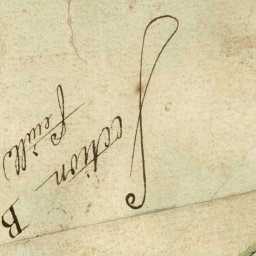 Section B
feuille